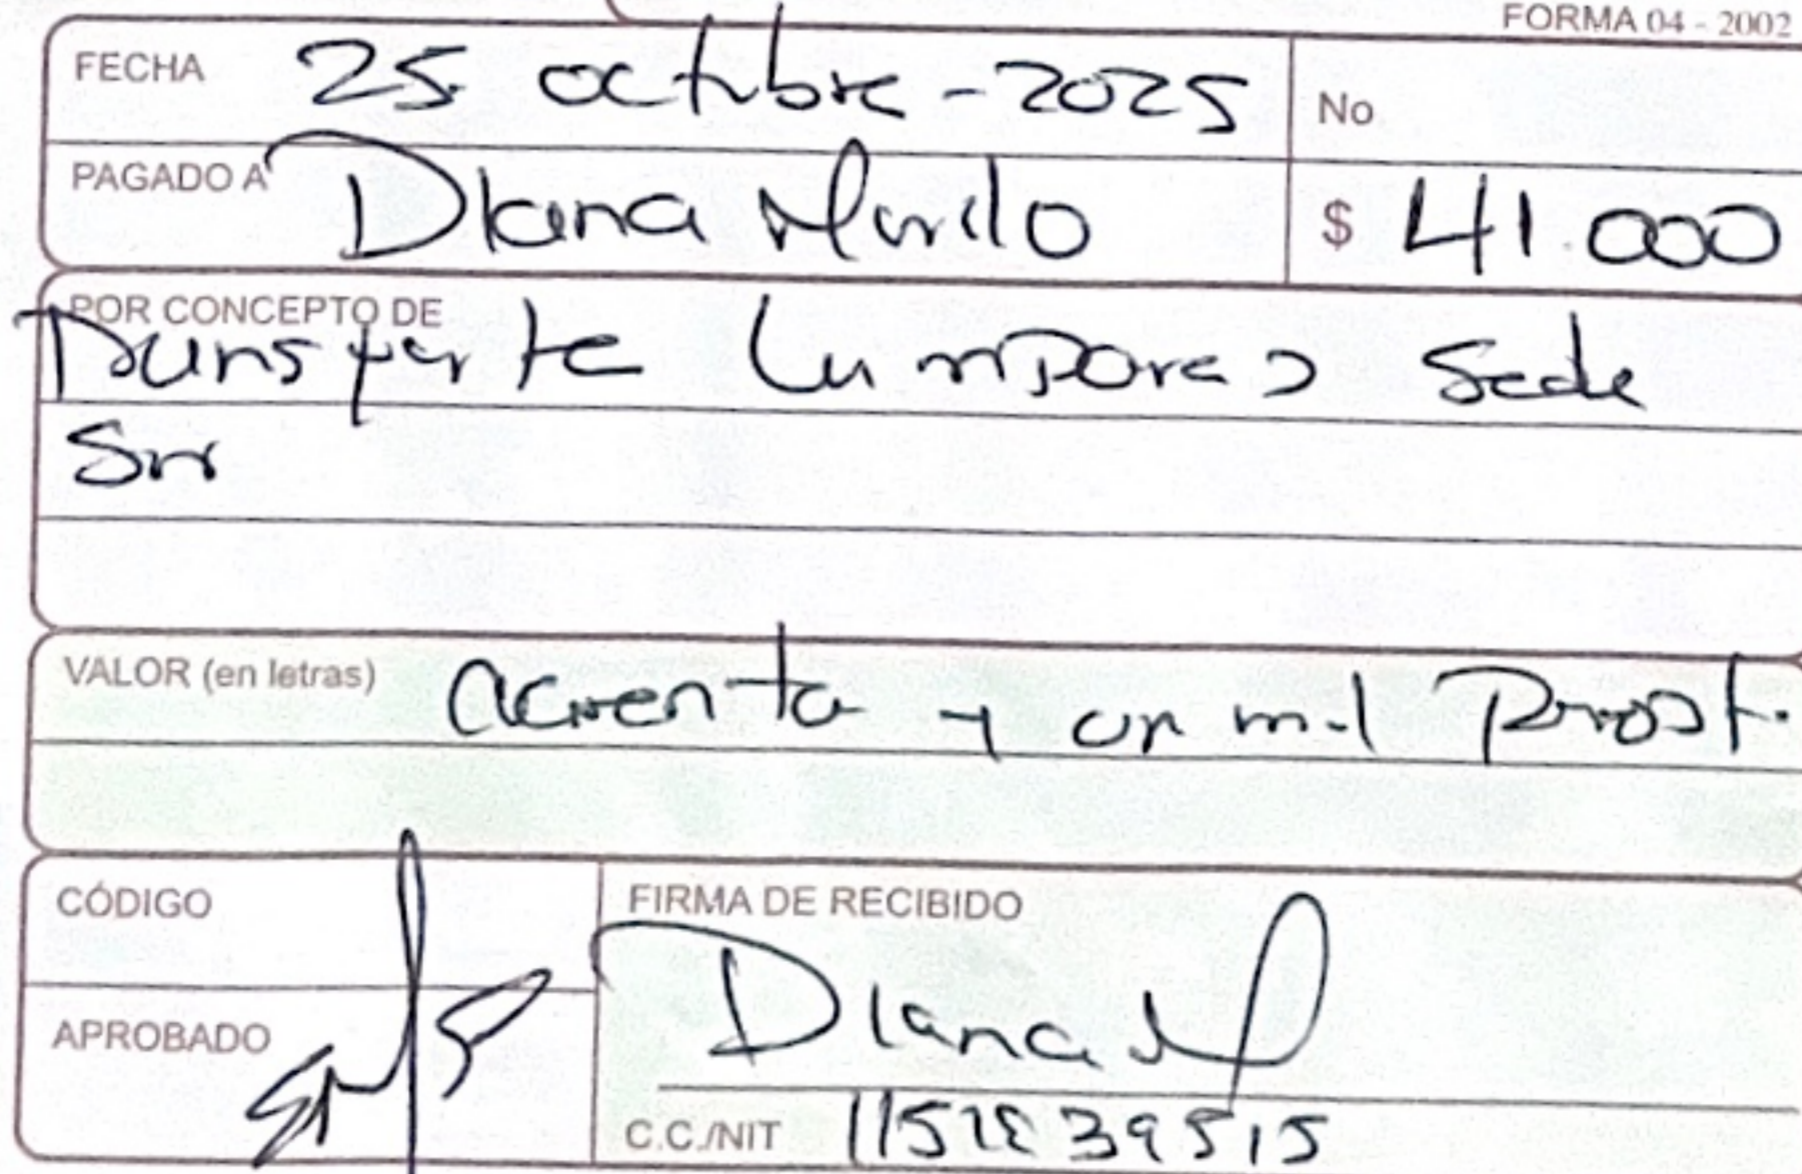 FORMA 04 - 2002
FECHA 25 octubre - 2025 No.
PAGADO A Diana Murilo $ 41.000
POR CONCEPTO DE
Transporte Lumpara Sede
Sur
VALOR (en letras) Cuarenta y un mil
CÓDIGO
FIRMA DE RECIBIDO
APROBADO
Diana M
C.C./NIT